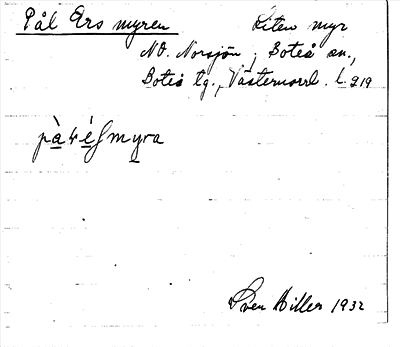 Pål Ers myren Liten myr
NO. Norsjön, Boteå sn.,
Boteå tg., Västernorrl. l. 219
myra
Sven Hillers 1932